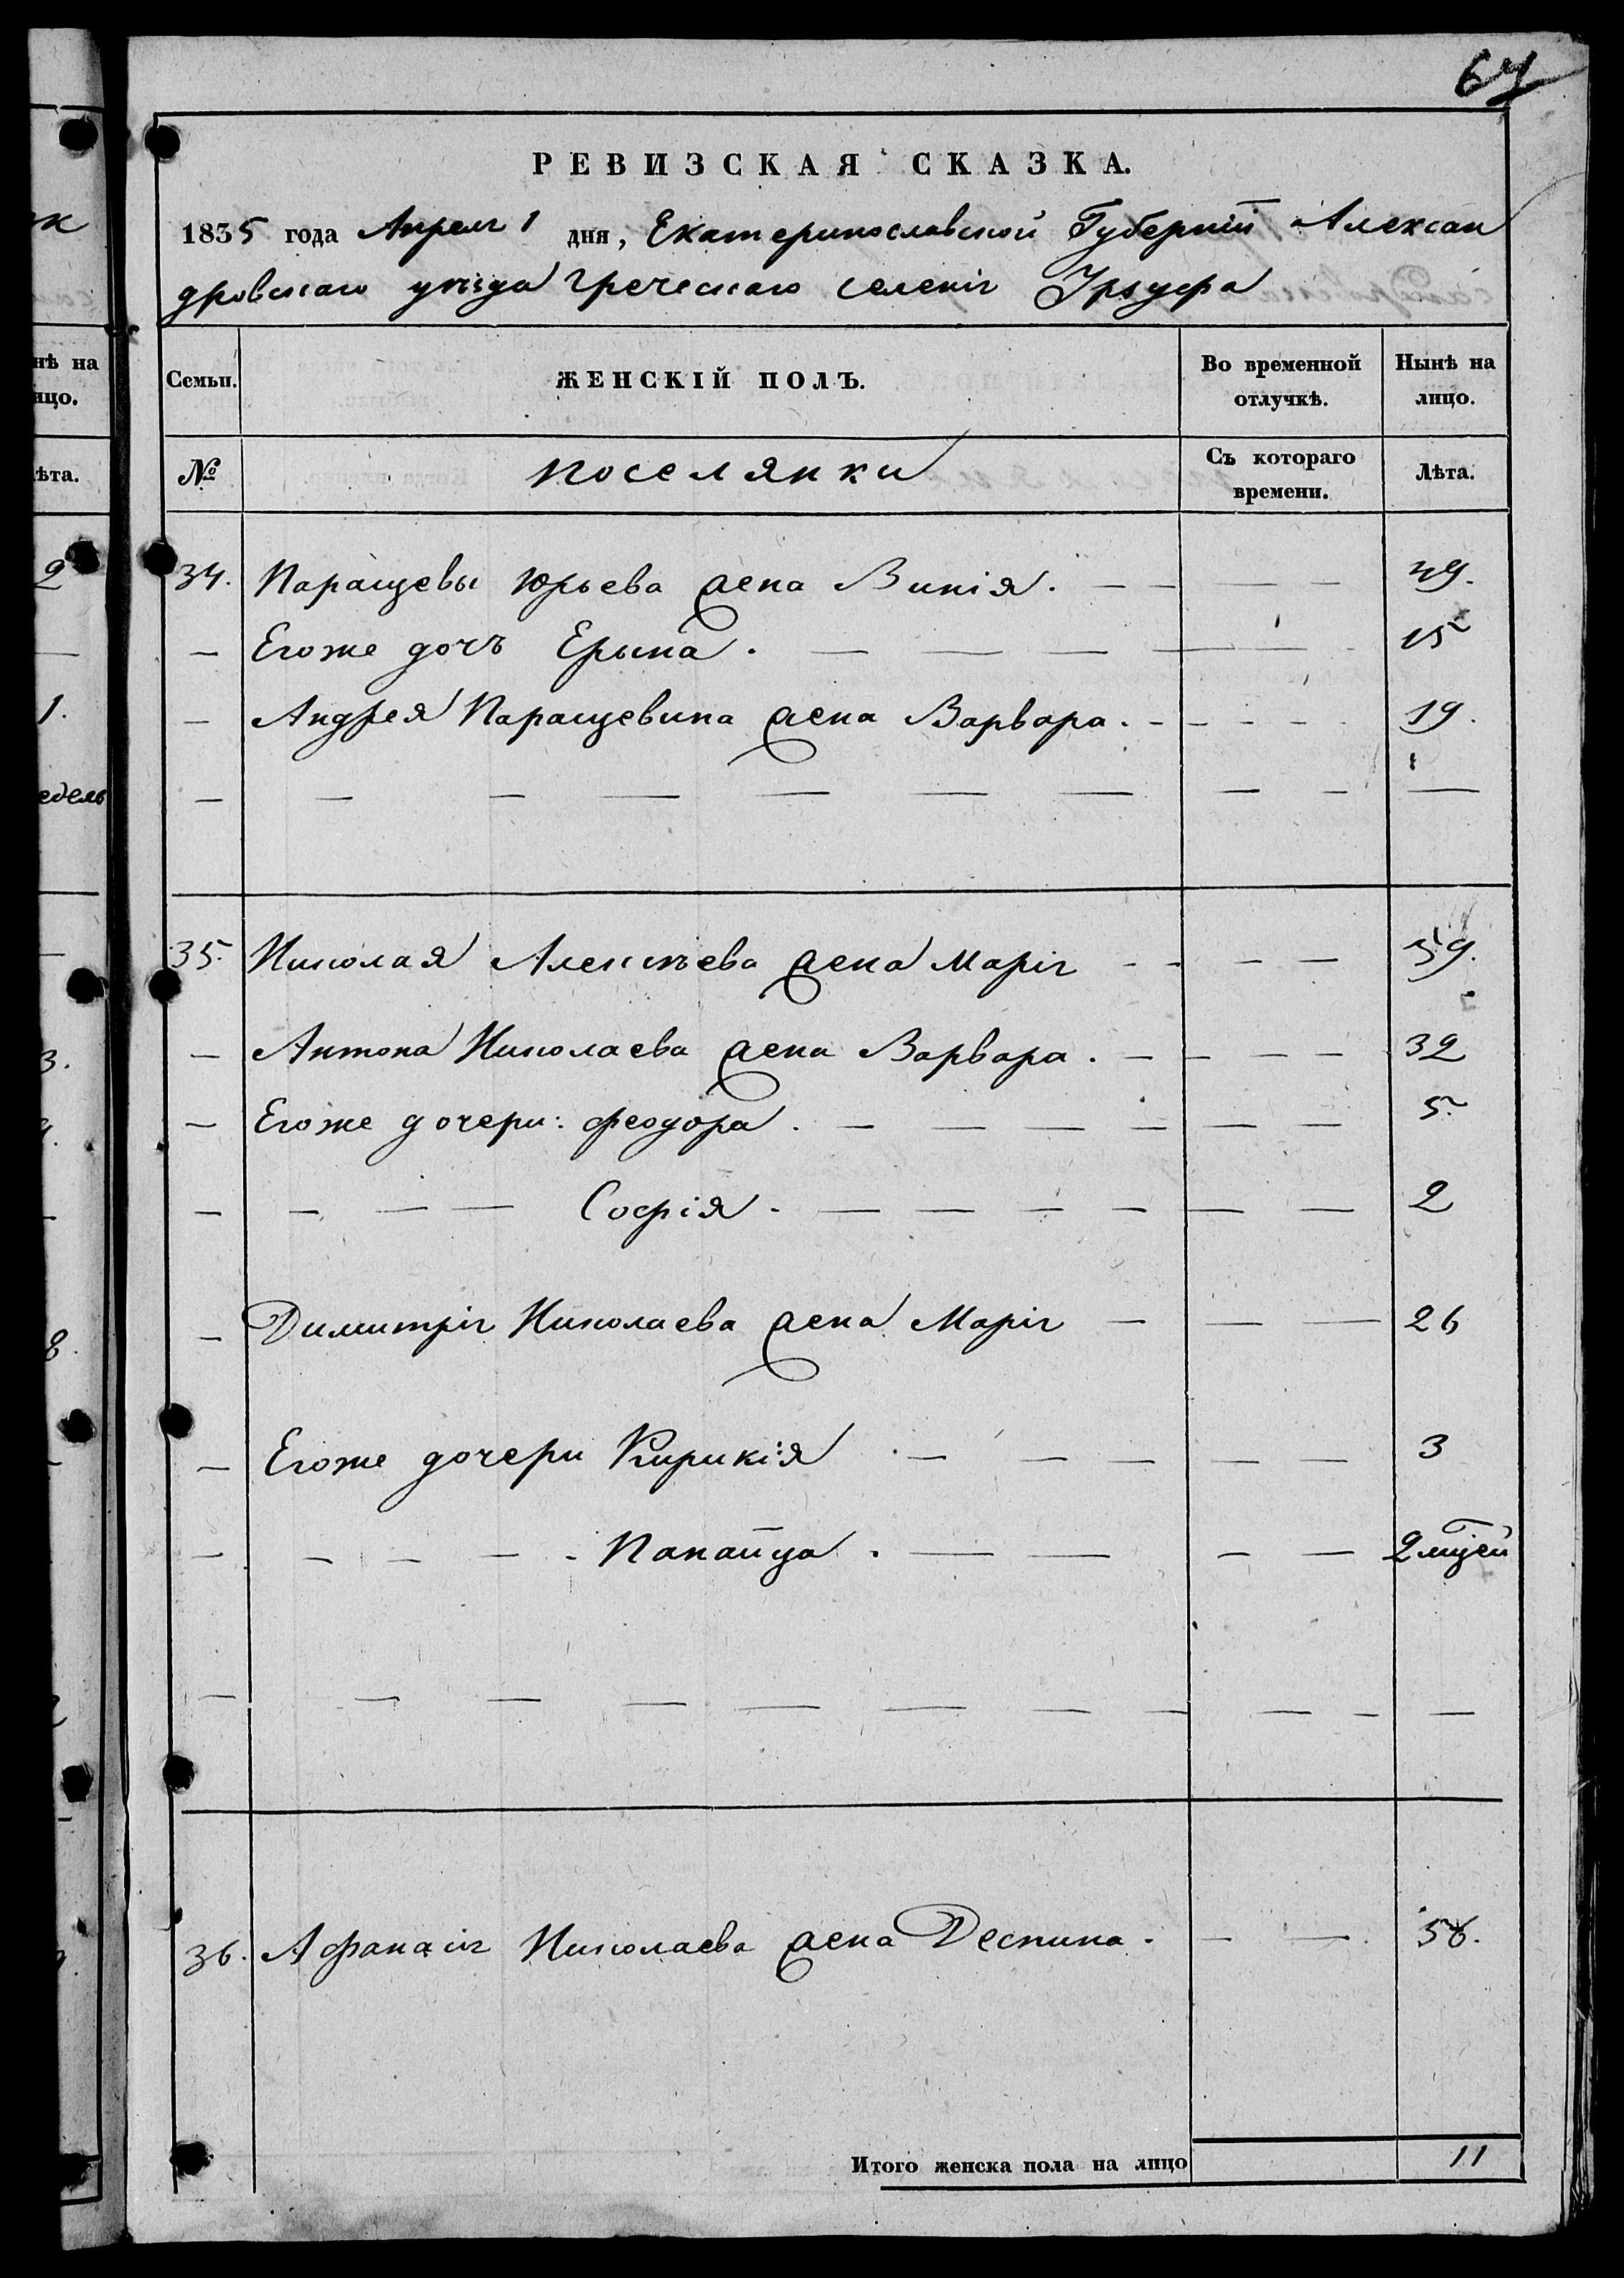 67
РЕВИЗСКАЯ СКАЗКА.
1835 года Апреля 1 дня, Екатеринославской Губерніи Алексан
дровскаго уѣзда Греческаго селенія Урзуфа
Семьи.
ЖЕНСКІЙ ПОЛЪ.
Во временной отлучкѣ.
Нынѣ на лицо.
№
поселянки
Съ котораго времени.
Лѣта.
34. Паращевы Юрьева жена Викія. 49.
Егоже дочь Ерына. 15
Андрея Паращевина жена Варвара. 19.
35. Николая Алексѣева жена Марія 59.
Антона Николаева жена Варвара. 32
Егоже дочери: Феодора. 5.
Софія. 2
Димитрія Николаева жена Марія 26
Егоже дочери Кирикія 3
Панаіца. 2 мцей
36. Афанасія Николаева жена Деспина. 56.
Итого женска пола на лицо 11
нѣ на
ицо.
ѣта.
2
1.
едель
3.
8.